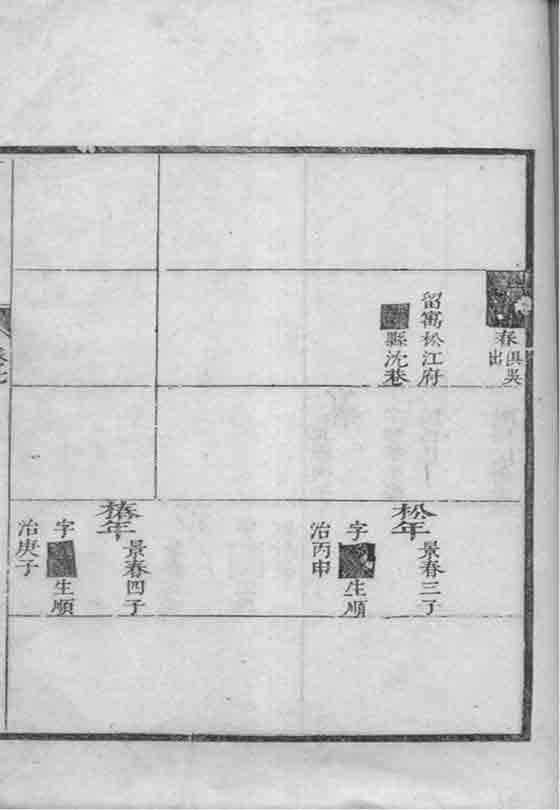 春
俱吳
出
留寓松江府
縣沈巷
松年
景春三子
字
生順
治丙申
椿年
景春四子
字
生順
治庚子